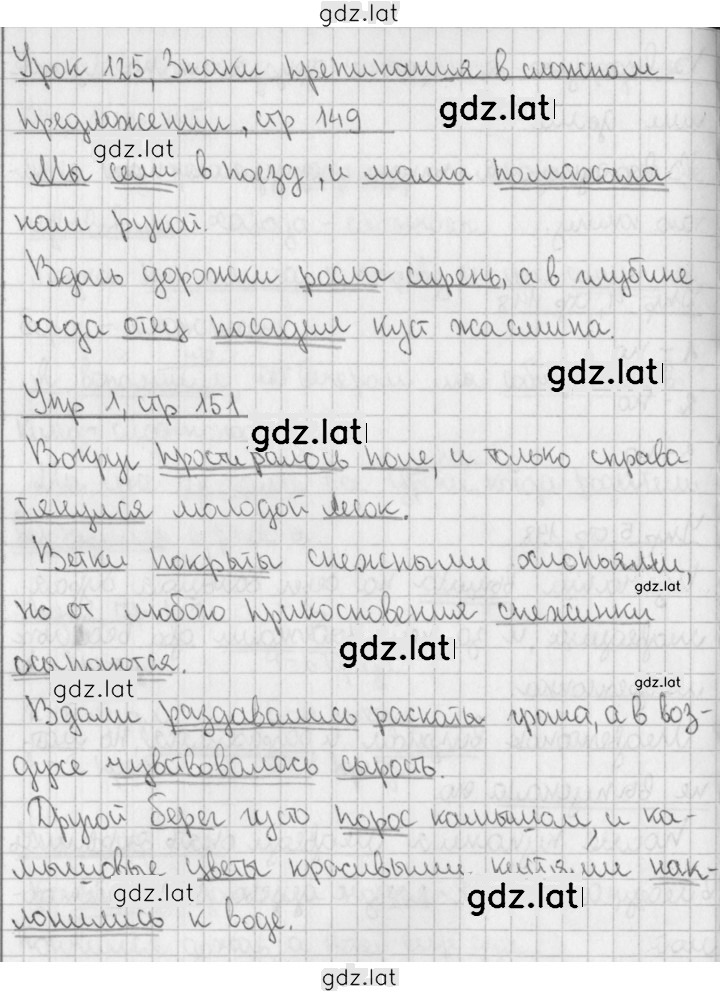 gdz.lat
Урок 125, Знаки препинания в сложном
gdz.lat
предложении, стр 149
gdz.lat
Мы сели в поезд, и мама помахала
нам рукой.
Вдоль дорожки росла сирень, а в глубине
сада отец посадил куст жасмина.
gdz.lat
Упр 1, стр 151
gdz.lat
Вокруг простиралось поле, и только справа
тянулся молодой лесок.
Ветки покрыты снежными хлопьями,
gdz.lat
но от любого прикосновения снежинки
gdz.lat
осыпаются.
gdz.lat
gdz.lat
Вдали раздавались раскаты грома, а в воз-
духе чувствовалась сырость.
Другой берег густо порос камышом, и ка-
мышовые цветы красивыми кистями нак-
gdz.lat
gdz.lat
лонились к воде.
gdz.lat